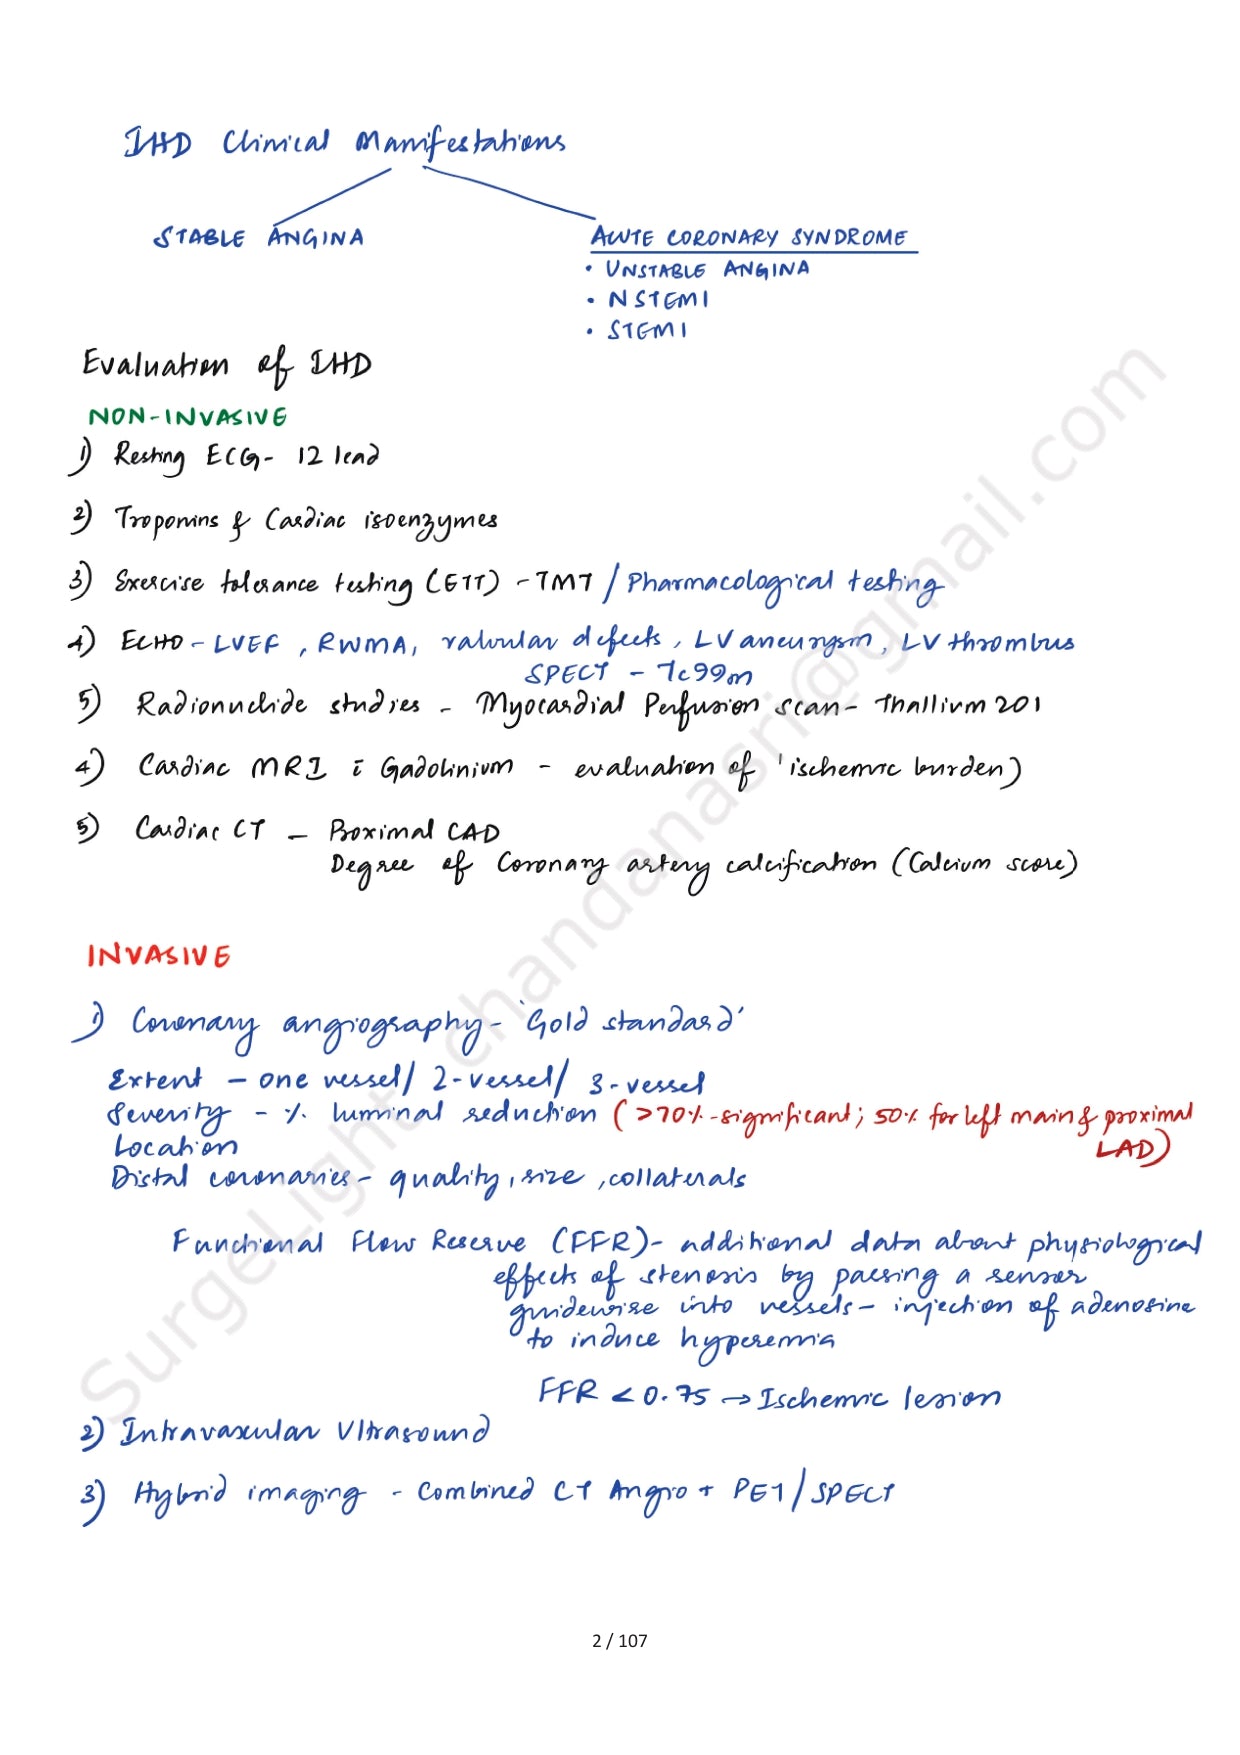 IHD Clinical Manifestations
STABLE ANGINA
ACUTE CORONARY SYNDROME
• UNSTABLE ANGINA
• NSTEMI
• STEMI
Evaluation of IHD
NON-INVASIVE
1) Resting ECG- 12 lead
2) Troponins & Cardiac isoenzymes
3) Exercise tolerance testing (ETT) - TMT / Pharmacological testing
4) ECHO - LVEF, RWMA, valvular defects, LV aneurysm, LV thrombus
SPECT - Tc99m
5) Radionuclide studies - Myocardial Perfusion scan - Thallium 201
4) Cardiac MRI c̄ Gadolinium - evaluation of 'ischemic burden)
5) Cardiac CT - Proximal CAD
Degree of Coronary artery calcification (Calcium score)
INVASIVE
1) Coronary angiography - 'Gold standard'
Extent - one vessel/ 2-vessel/ 3-vessel
Severity - % luminal reduction (>70% -significant; 50% for left main & proximal
LAD)
Location
Distal coronaries - quality, size, collaterals
Functional Flow Reserve (FFR)- additional data about physiological
effects of stenosis by passing a sensor
guidewire into vessels - injection of adenosine
to induce hyperemia
FFR < 0.75 → Ischemic lesion
2) Intravascular Ultrasound
3) Hybrid imaging - Combined CT Angio + PET/SPECT
SurgeLight - chandanasri@gmail.com
2 / 107